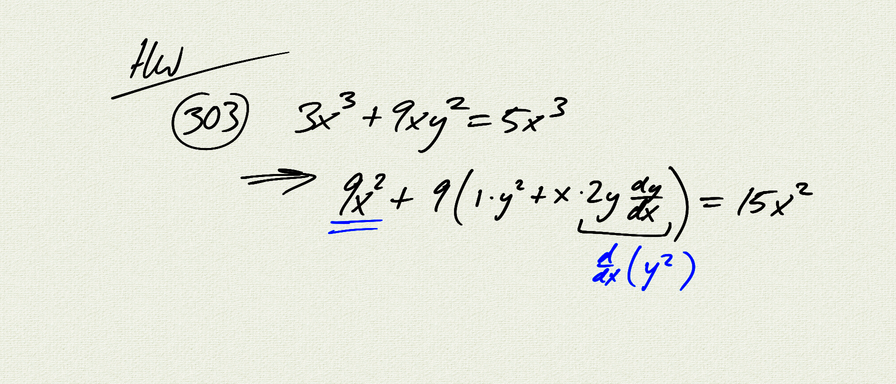 HW
303 3x³ + 9xy² = 5x³
⇒ 9x² + 9(1·y² + x·2y dy/dx) = 15x²
d/dx(y²)